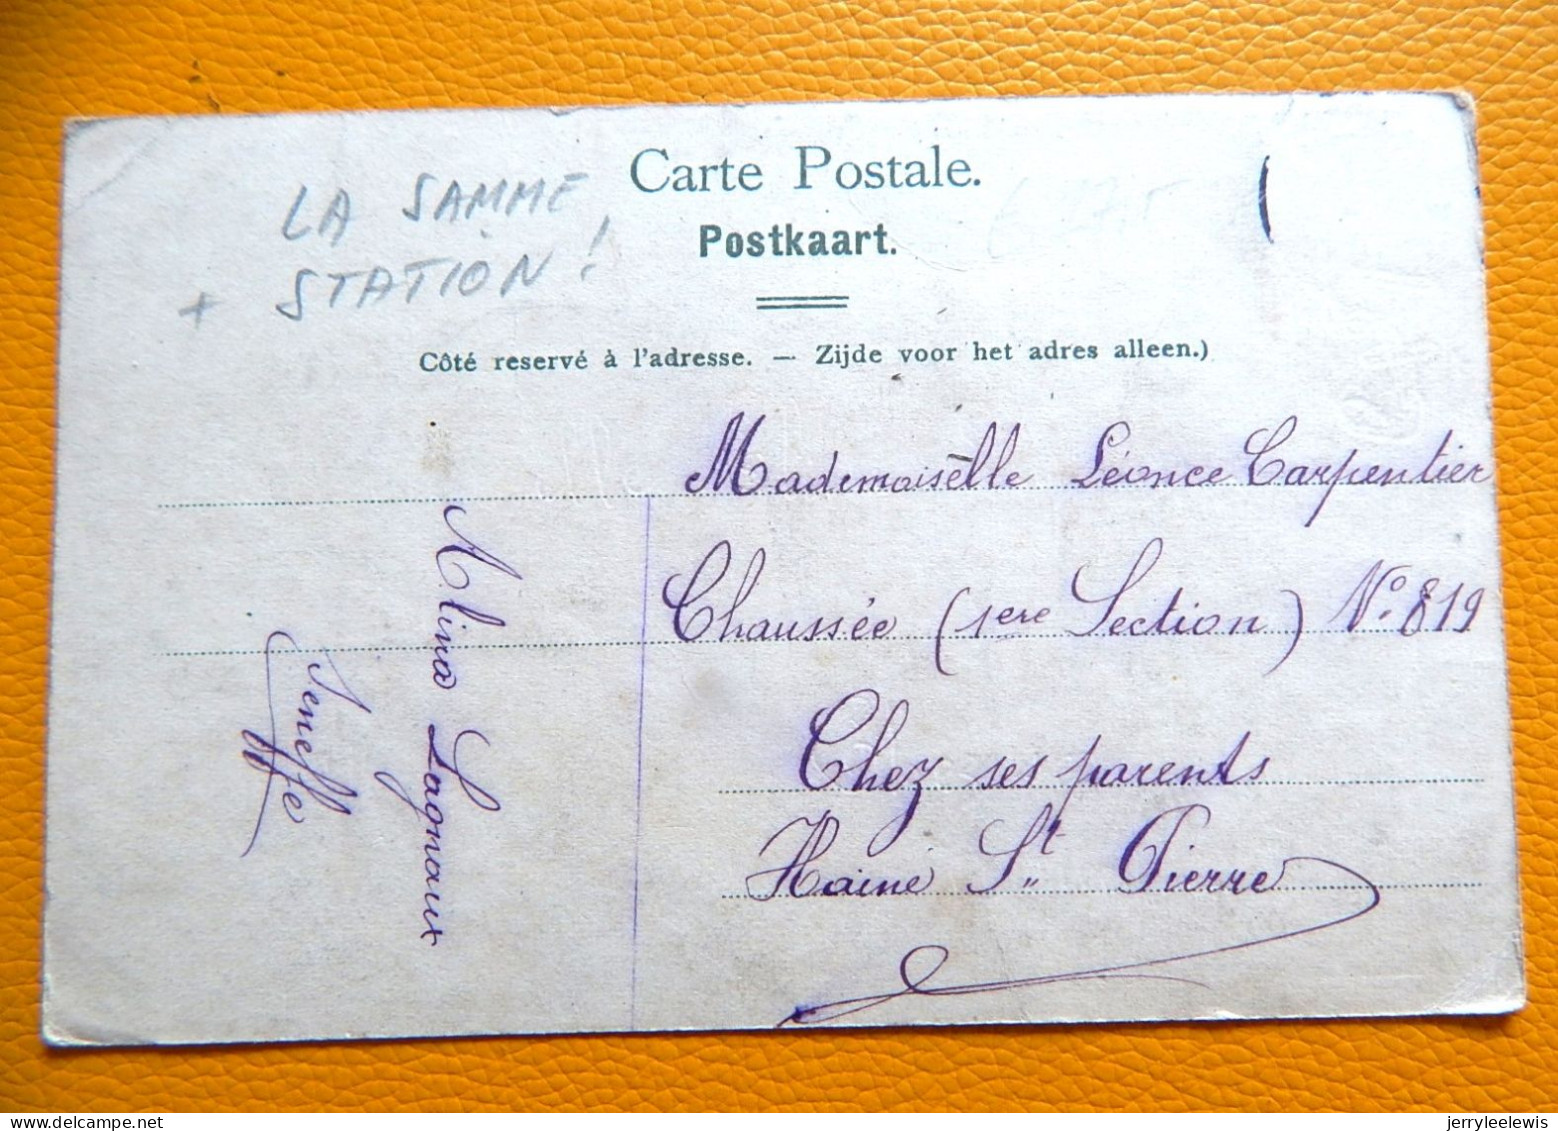 Carte Postale.
Postkaart.
LA SAMME
+ STATION !
Côté reservé à l'adresse. — Zijde voor het adres alleen.)
Mademoiselle Léonce Carpentier
Chaussée (1ere Section) No. 819
Chez ses parents
Haine St. Pierre
Alina Lagnaux
Seneffe
www.delcampe.net
jerryleelewis